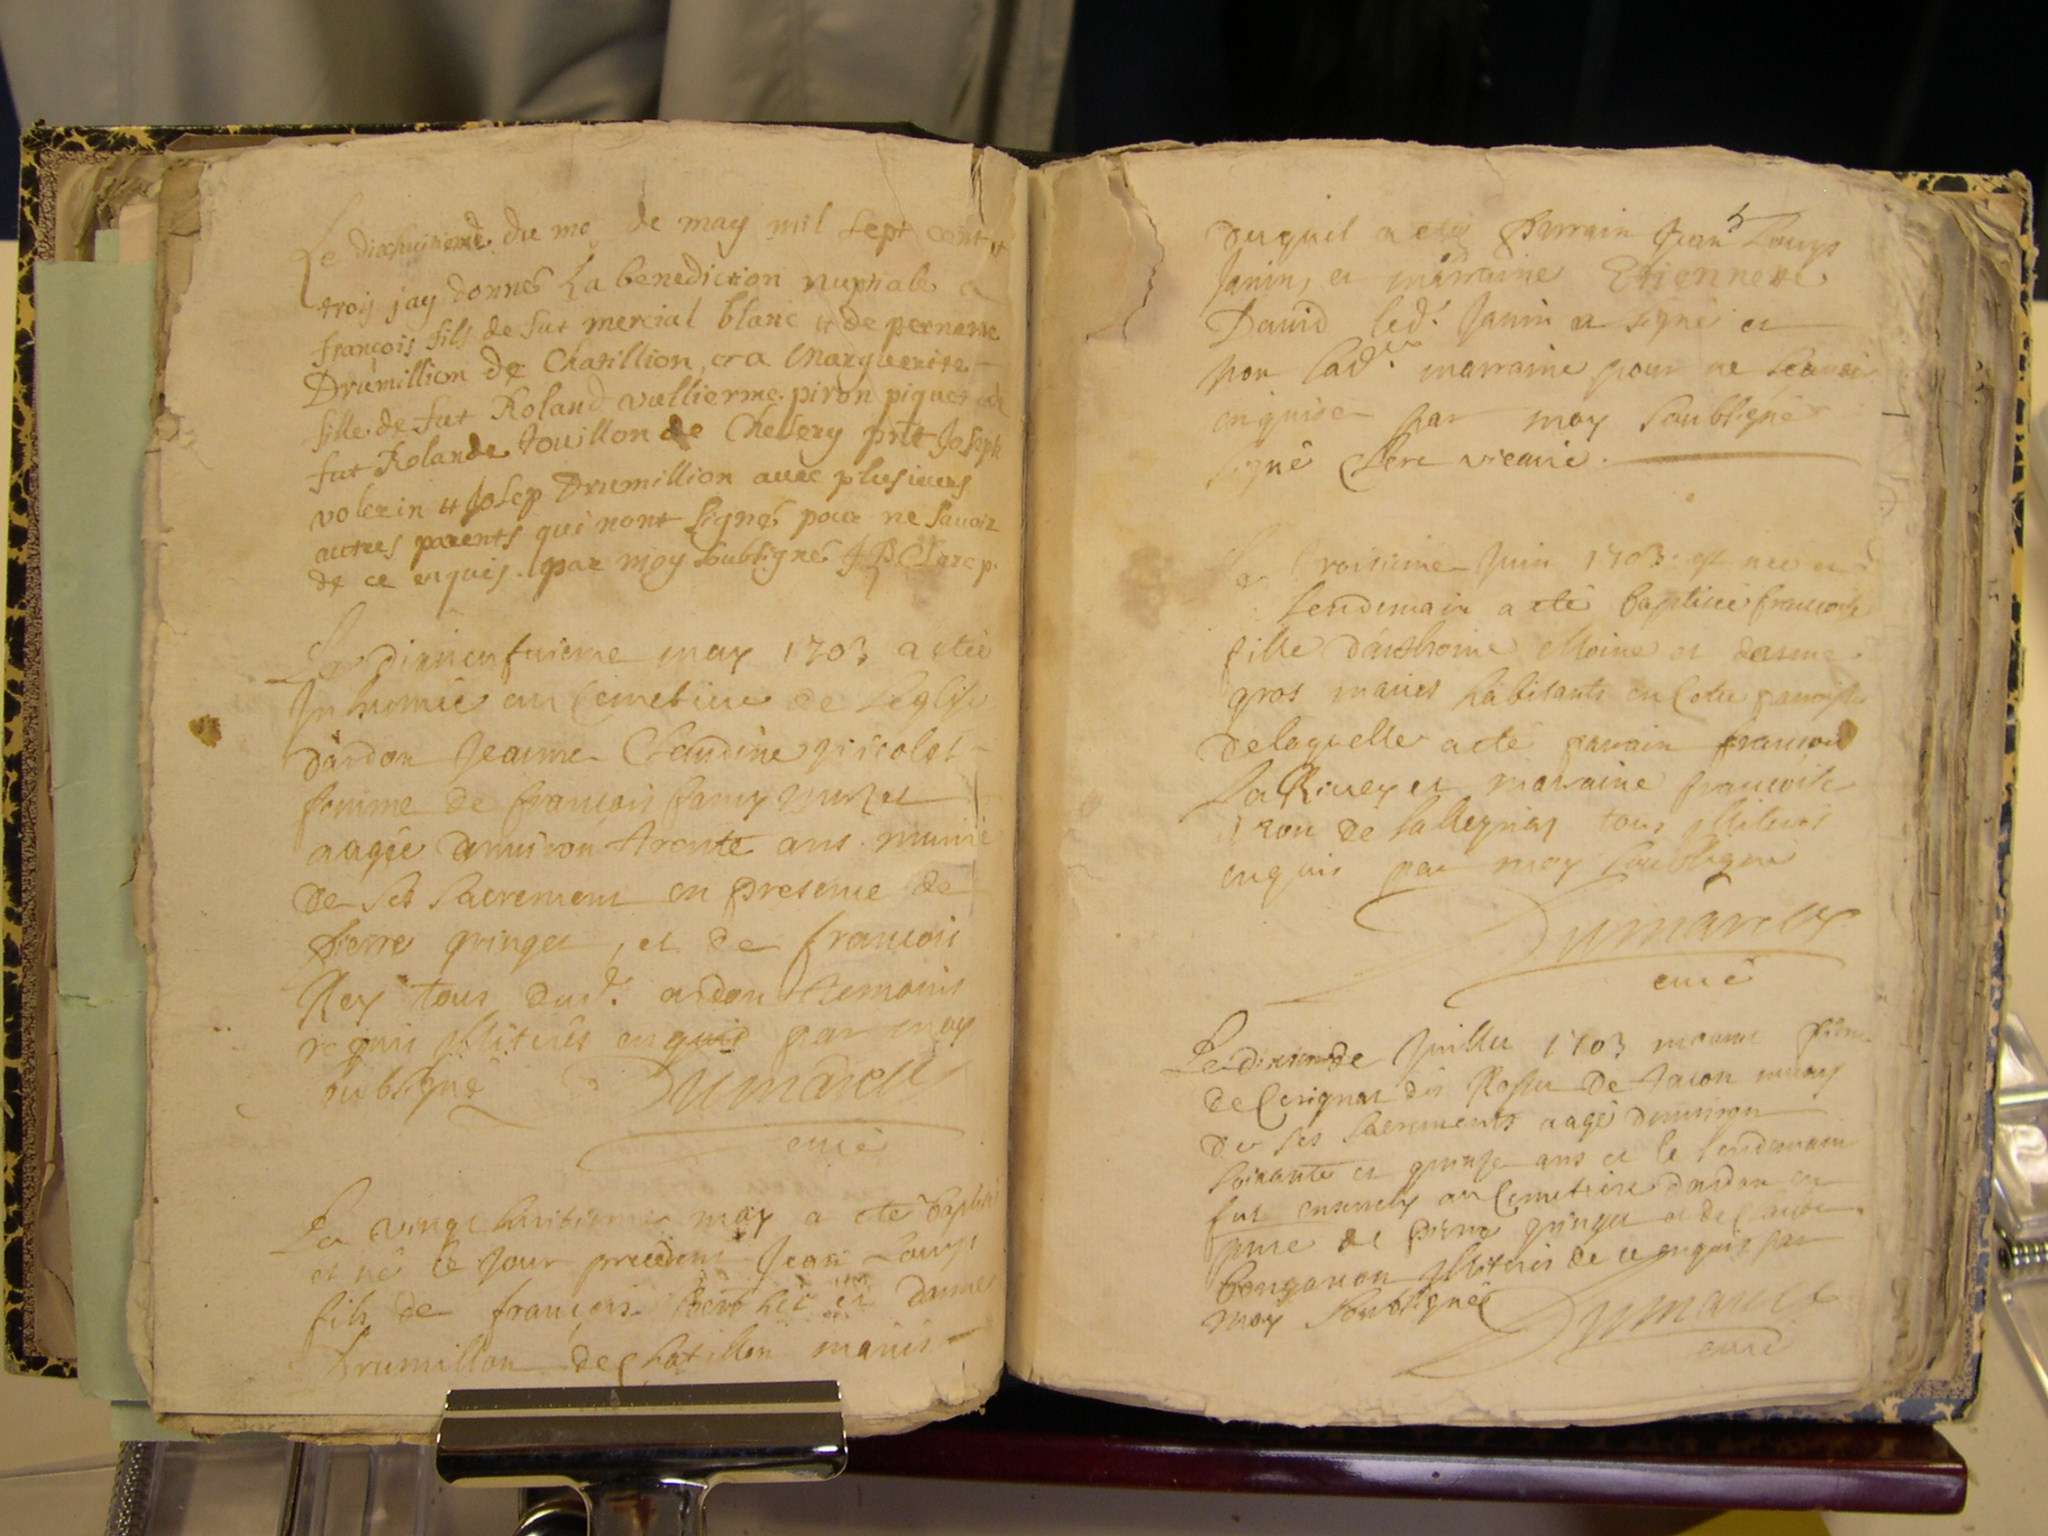 Le dixhuitieme du mo de may mil sept cent et
troij jay donnés La benediction nuptiale a
françois fils de fut mercial blanc et de pernette
Drumillion de Chatillion, et a Marguerite
fille de fut Roland vullierme piron piquet et de
fut Rolande touillon de Chevery pnt Joseph
volerin et Josep Drumillion avec plusieurs
autres parents qui nont signés pour ne savoir
de ce enquis par moy soubsigné J B Clerc p.
Le dixneufvieme may 1703 a etée
Inhumée au Cimetiere de Leglise
dardon Jeanne Claudine nicolet
femme de francois famy
aagée denviron trente ans munie
de ses sacrement en presence de
pierre gringet, et de francois
Rey tous dud.t ardon temoins
requis illiterés enquis par moy
soubsigné Dumarest
curé
Le vingt huitieme may a eté baptisé
et né le jour precedent Jean Louys
fils de francois et danne
Drumillon de Chatillon mariés
5
duquel a eté parrain Jean Louys
Janin, et marraine Etiennette
David led.t Janin a signé et
non lad.te marraine pour ne scavoir
enquise par moy soubsigné
signé Clerc vicaire.
Le troisieme Juin 1703 est née et
lendemain a eté baptisée francoise
fille danthoine Moine et danne
gros mariés habitants en cette paroisse
delaquelle a eté parrain francois
LaRivey et marraine francoise
de tous illiterés
enquis par moy soubsigné
Dumarest
curé
Le dixieme de Juillet 1703 mourut pierre
de Cerignat dit Rosset de tacon munis
de ses sacrements aagé denviron
soixante et quinze ans et le lendemain
fut ensevely au Cimetiere dardon en
pnce de pierre gringet et de Claude
illiterés de ce enquis par
moy soubsigné Dumarest
curé